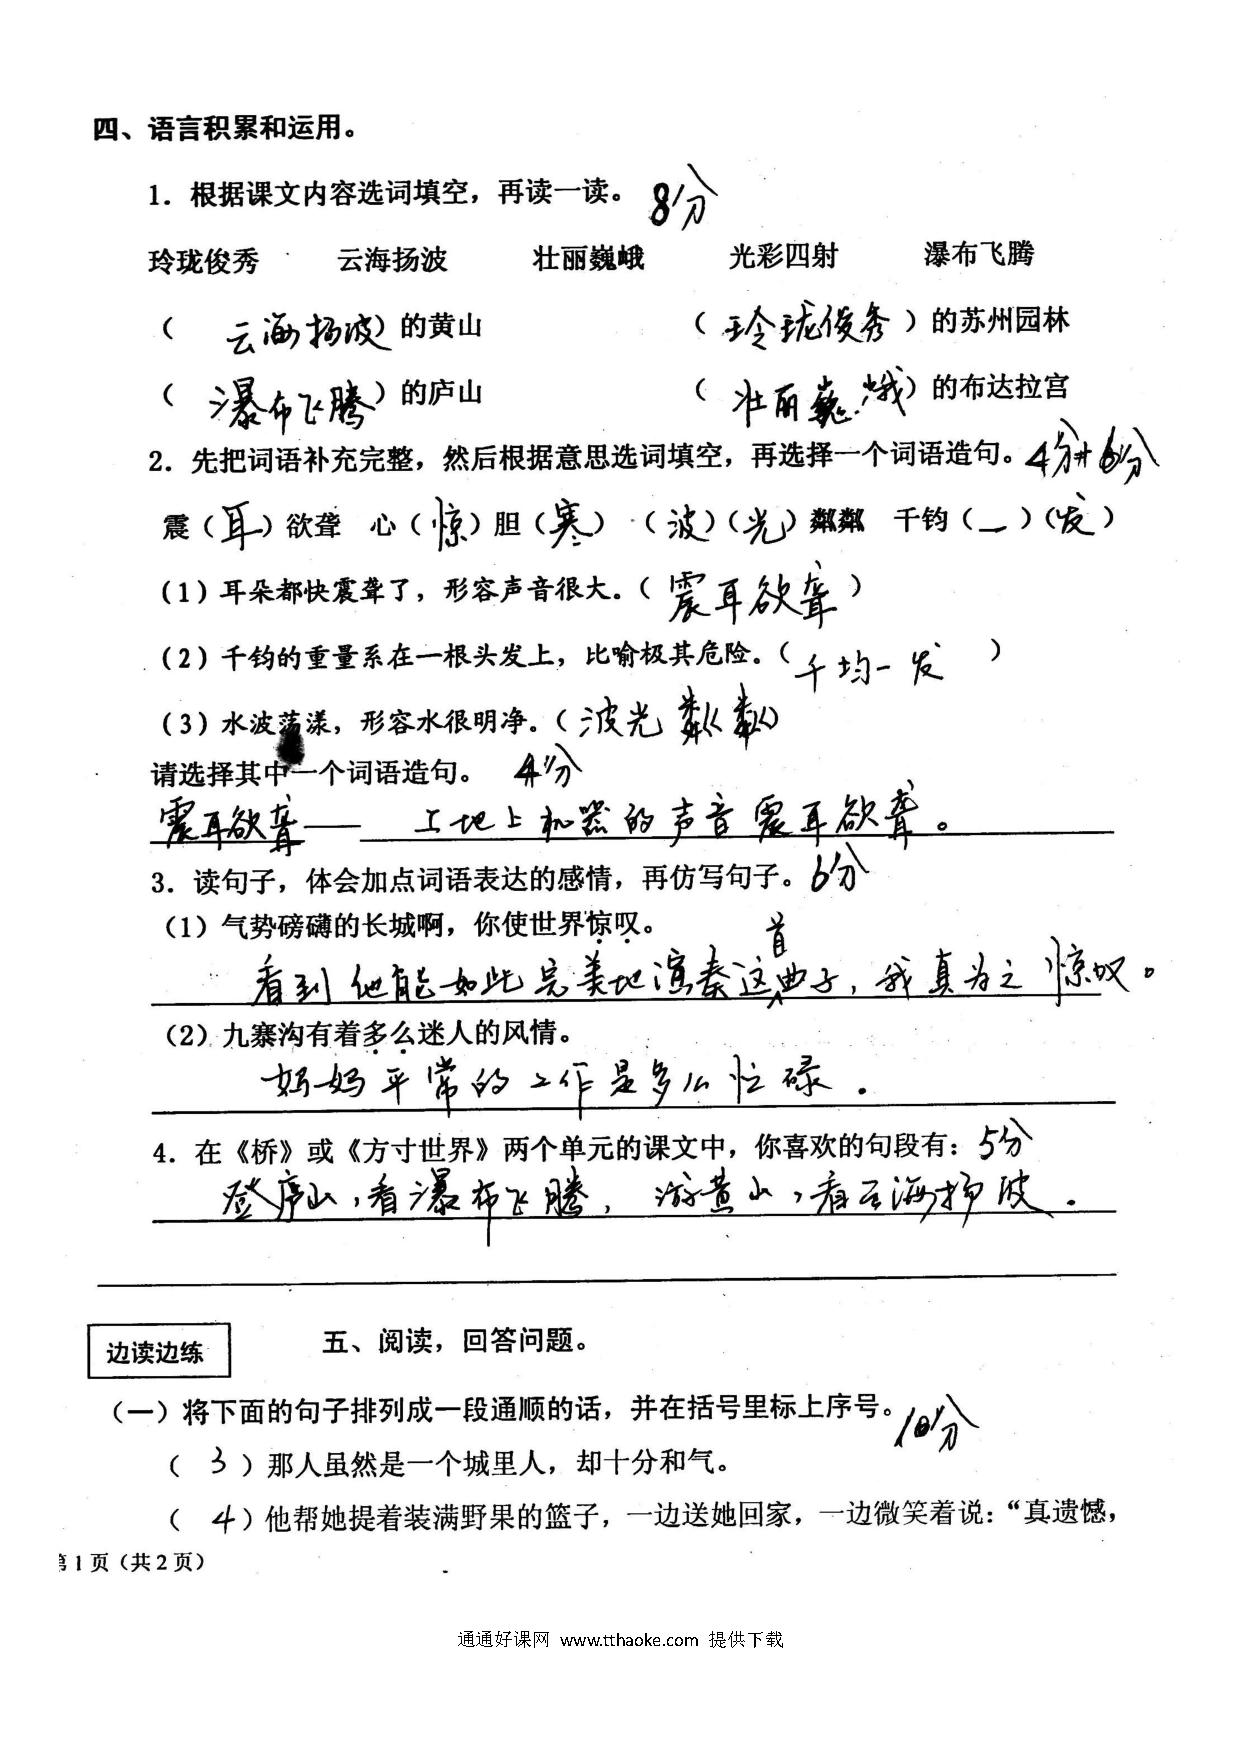 四、语言积累和运用。
1．根据课文内容选词填空，再读一读。 8分
玲珑俊秀 云海扬波 壮丽巍峨 光彩四射 瀑布飞腾
（云海扬波）的黄山 （玲珑俊秀）的苏州园林
（瀑布飞腾）的庐山 （壮丽巍峨）的布达拉宫
2．先把词语补充完整，然后根据意思选词填空，再选择一个词语造句。4分+6分
震（耳）欲聋 心（惊）胆（寒） （波）（光）粼粼 千钧（一）（发）
（1）耳朵都快震聋了，形容声音很大。（震耳欲聋）
（2）千钧的重量系在一根头发上，比喻极其危险。（千均一发）
（3）水波荡漾，形容水很明净。（波光粼粼）
请选择其中一个词语造句。 4分
震耳欲聋—— 工地上机器的声音震耳欲聋。
3．读句子，体会加点词语表达的感情，再仿写句子。6分
（1）气势磅礴的长城啊，你使世界惊叹。
看到他能如此完美地演奏这首曲子，我真为之惊叹。
（2）九寨沟有着多么迷人的风情。
妈妈平常的工作是多么忙碌．
4．在《桥》或《方寸世界》两个单元的课文中，你喜欢的句段有：5分
登庐山，看瀑布飞腾，游黄山，看云海扬波．
边读边练 五、阅读，回答问题。
（一）将下面的句子排列成一段通顺的话，并在括号里标上序号。10分
（ 3 ）那人虽然是一个城里人，却十分和气。
（ 4 ）他帮她提着装满野果的篮子，一边送她回家，一边微笑着说：“真遗憾，
第1页（共2页）
通通好课网 www.tthaoke.com 提供下载